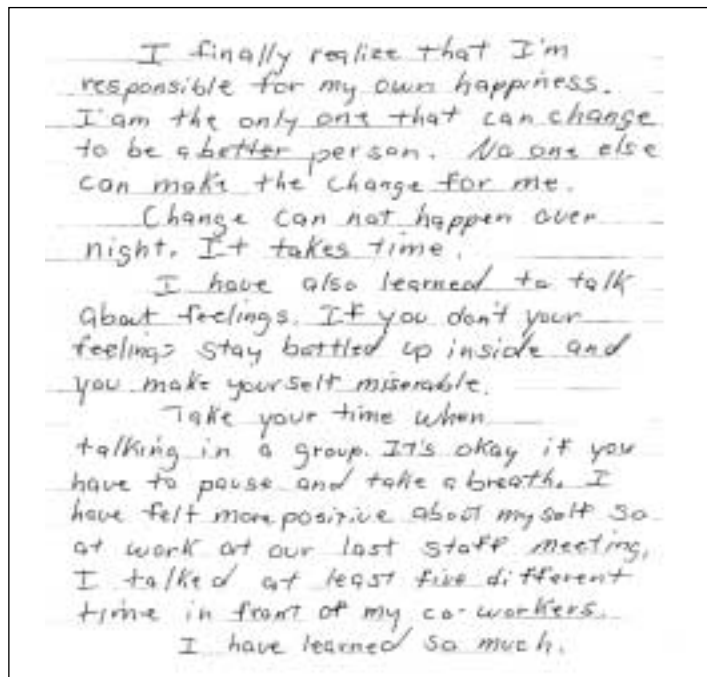 I finally realize that I'm
responsible for my own happiness.
I am the only one that can change
to be a better person. No one else
can make the change for me.
Change can not happen over
night. It takes time.
I have also learned to talk
about feelings. If you don't your
feelings stay bottled up inside and
you make yourself miserable.
Take your time when
talking in a group. It's okay if you
have to pause and take a breath. I
have felt more positive about myself so
at work at our last staff meeting,
I talked at least five different
time in front of my co-workers.
I have learned so much.